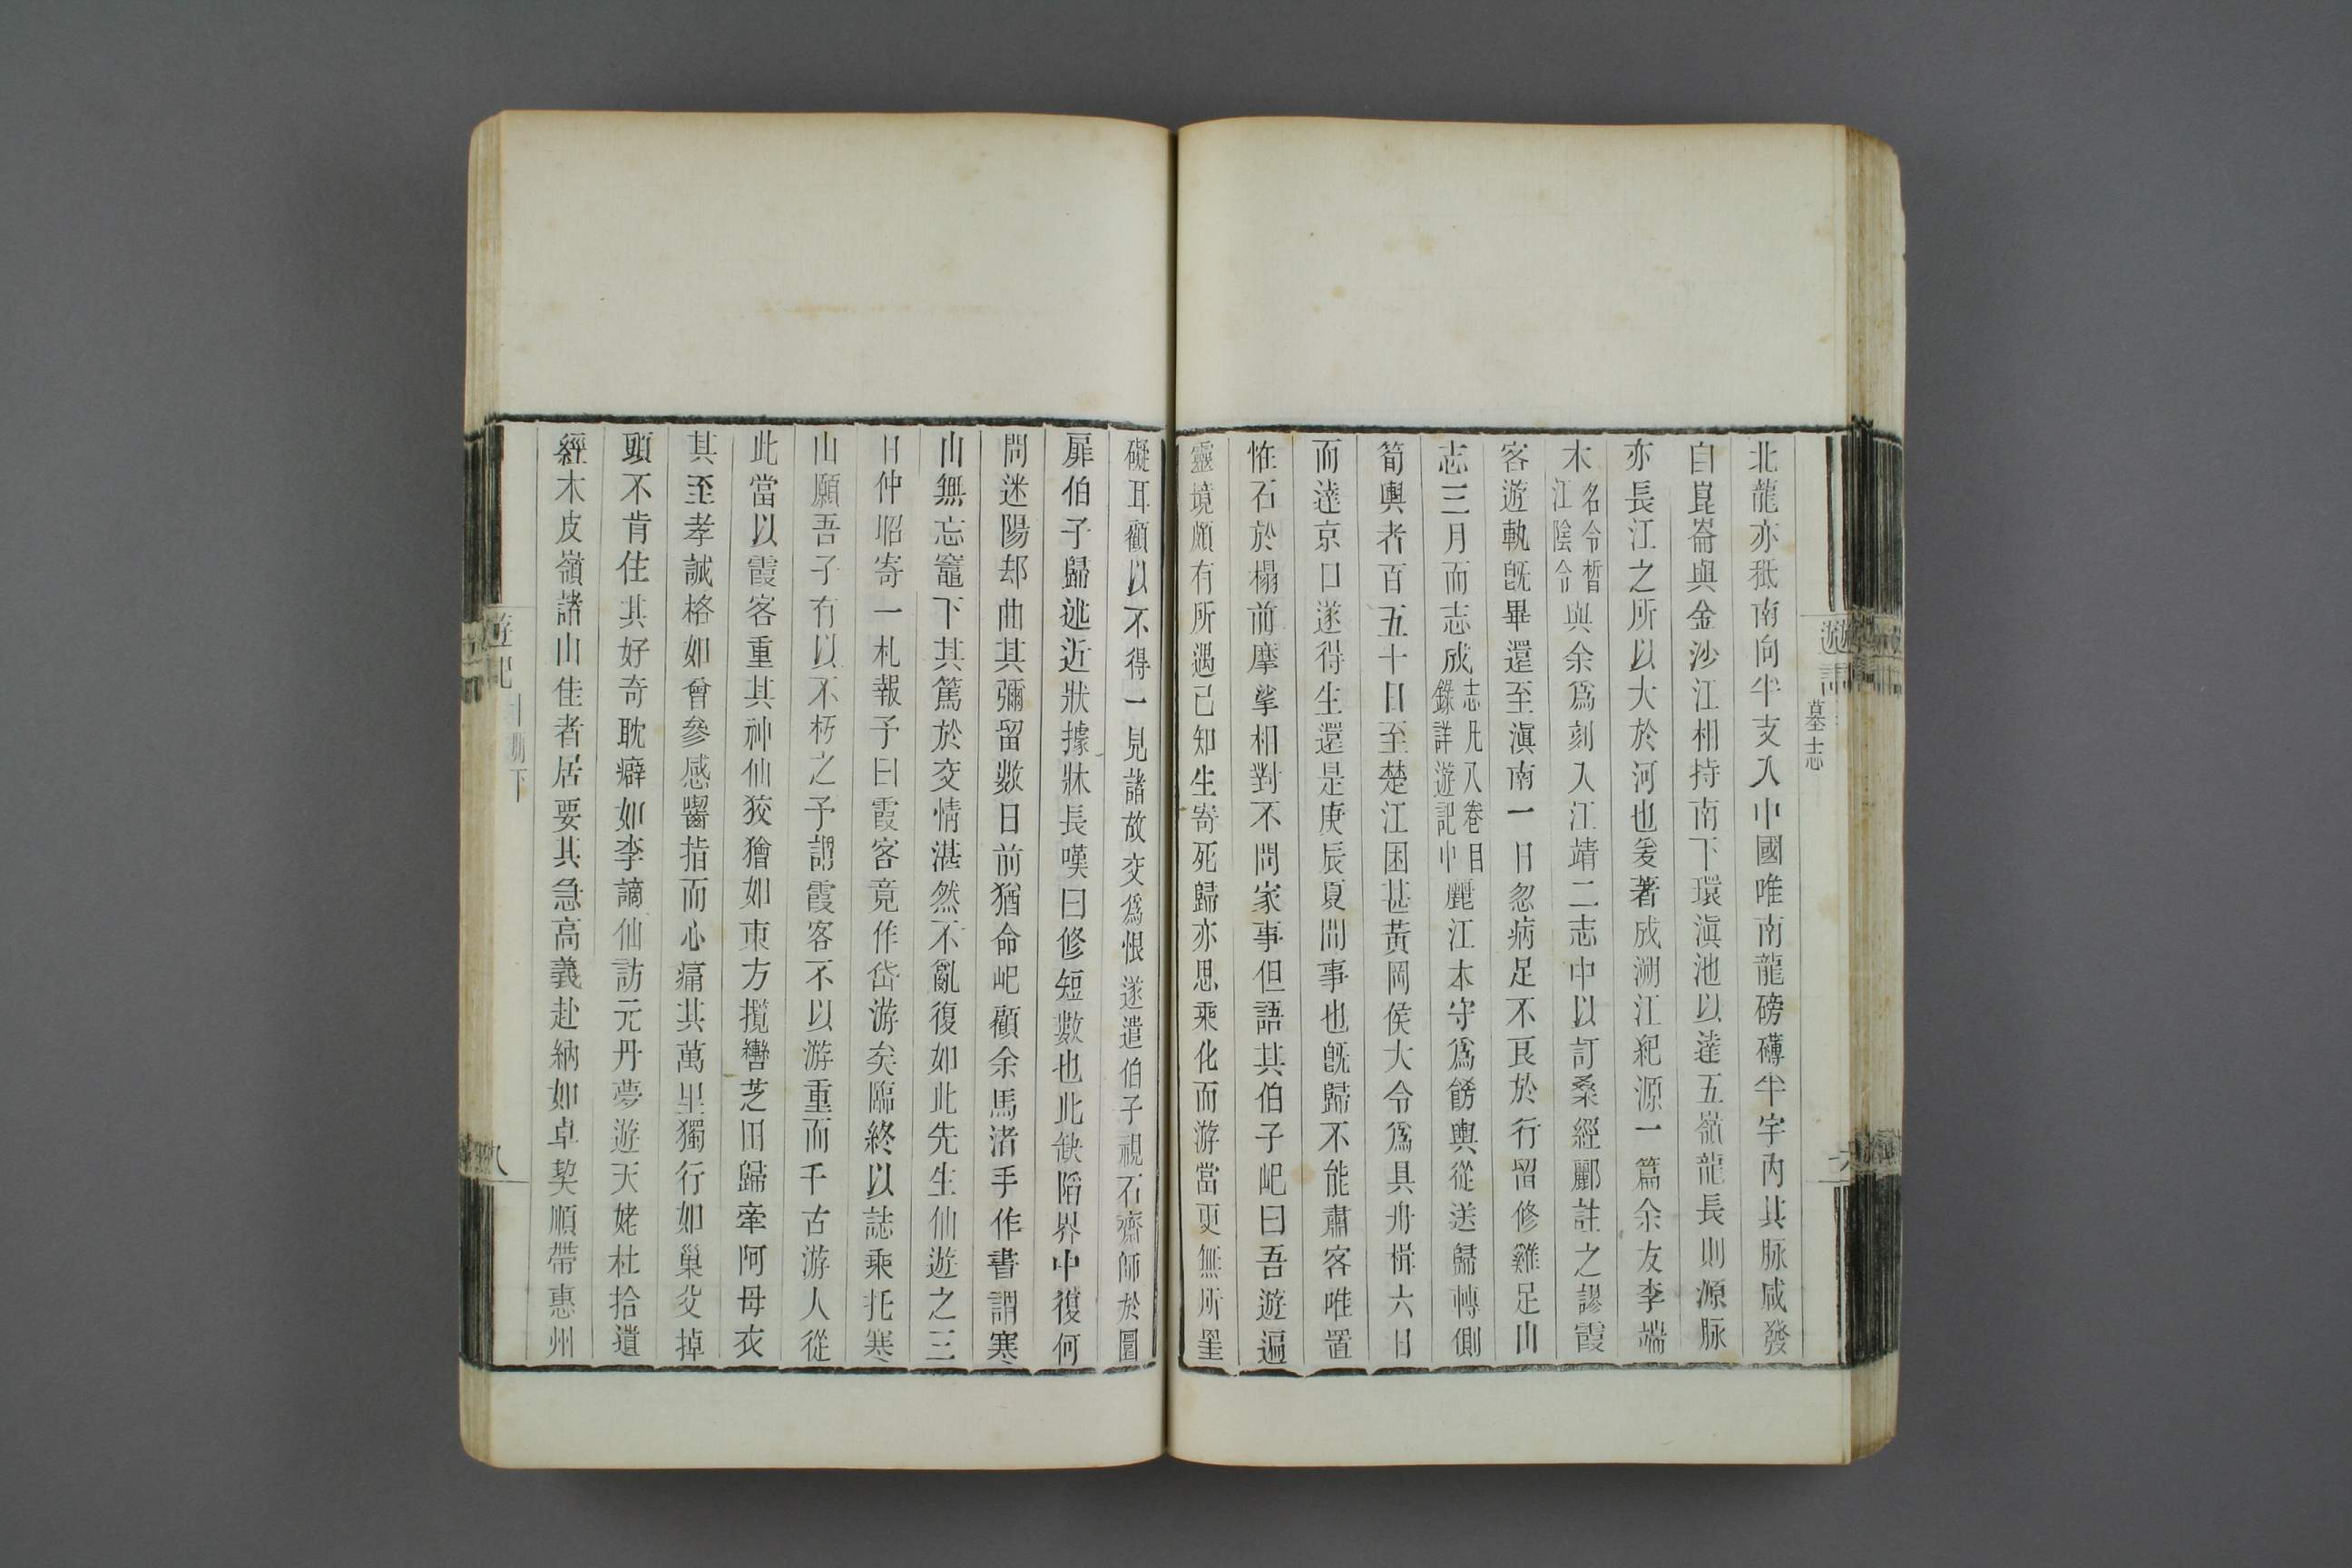 遊記
墓志
北龍亦秪南向半支入中國唯南龍磅礴半宇內其脉咸發
自崑崙與金沙江相持南下環滇池以達五嶺龍長則源脉
亦長江之所以大於河也爰著成溯江紀源一篇余友李端
木名令晳江陰令與余爲刻入江靖二志中以訂桑經酈註之謬霞
客遊軌旣畢還至滇南一日忽病足不良於行留修雞足山
志三月而志成志凡八卷目錄詳遊記中麗江木守爲餝輿從送歸轉側
筍輿者百五十日至楚江困甚黃岡侯大令爲具舟楫六日
而達京口遂得生還是庚辰夏間事也旣歸不能肅客唯置
恠石於榻前摩挲相對不問家事但語其伯子屺曰吾遊遍
靈境頗有所遇已知生寄死歸亦思乘化而游當更無所罣
礙耳顧以不得一見諸故交爲恨遂遣伯子視石齋師於圜
扉伯子歸述近狀據牀長嘆曰修短數也此缺陷界中復何
問迷陽却曲其彌留數日前猶命屺顧余馬渚手作書謂寒
山無忘竈下其篤於交情湛然不亂復如此先生仙遊之三
日仲昭寄一札報予曰霞客竟作岱游矣臨終以誌乘托寒
山願吾子有以不朽之予謂霞客不以游重而千古游人從
此當以霞客重其神仙狡獪如東方攬轡芝田歸牽阿母衣
其至孝誠格如曾參感齧指而心痛其萬里獨行如巢父掉
頭不肯住其好奇耽癖如李謫仙訪元丹夢遊天姥杜拾遺
經木皮嶺諸山佳者居要其急高義赴納如卓契順帶惠州
遊記
下
八